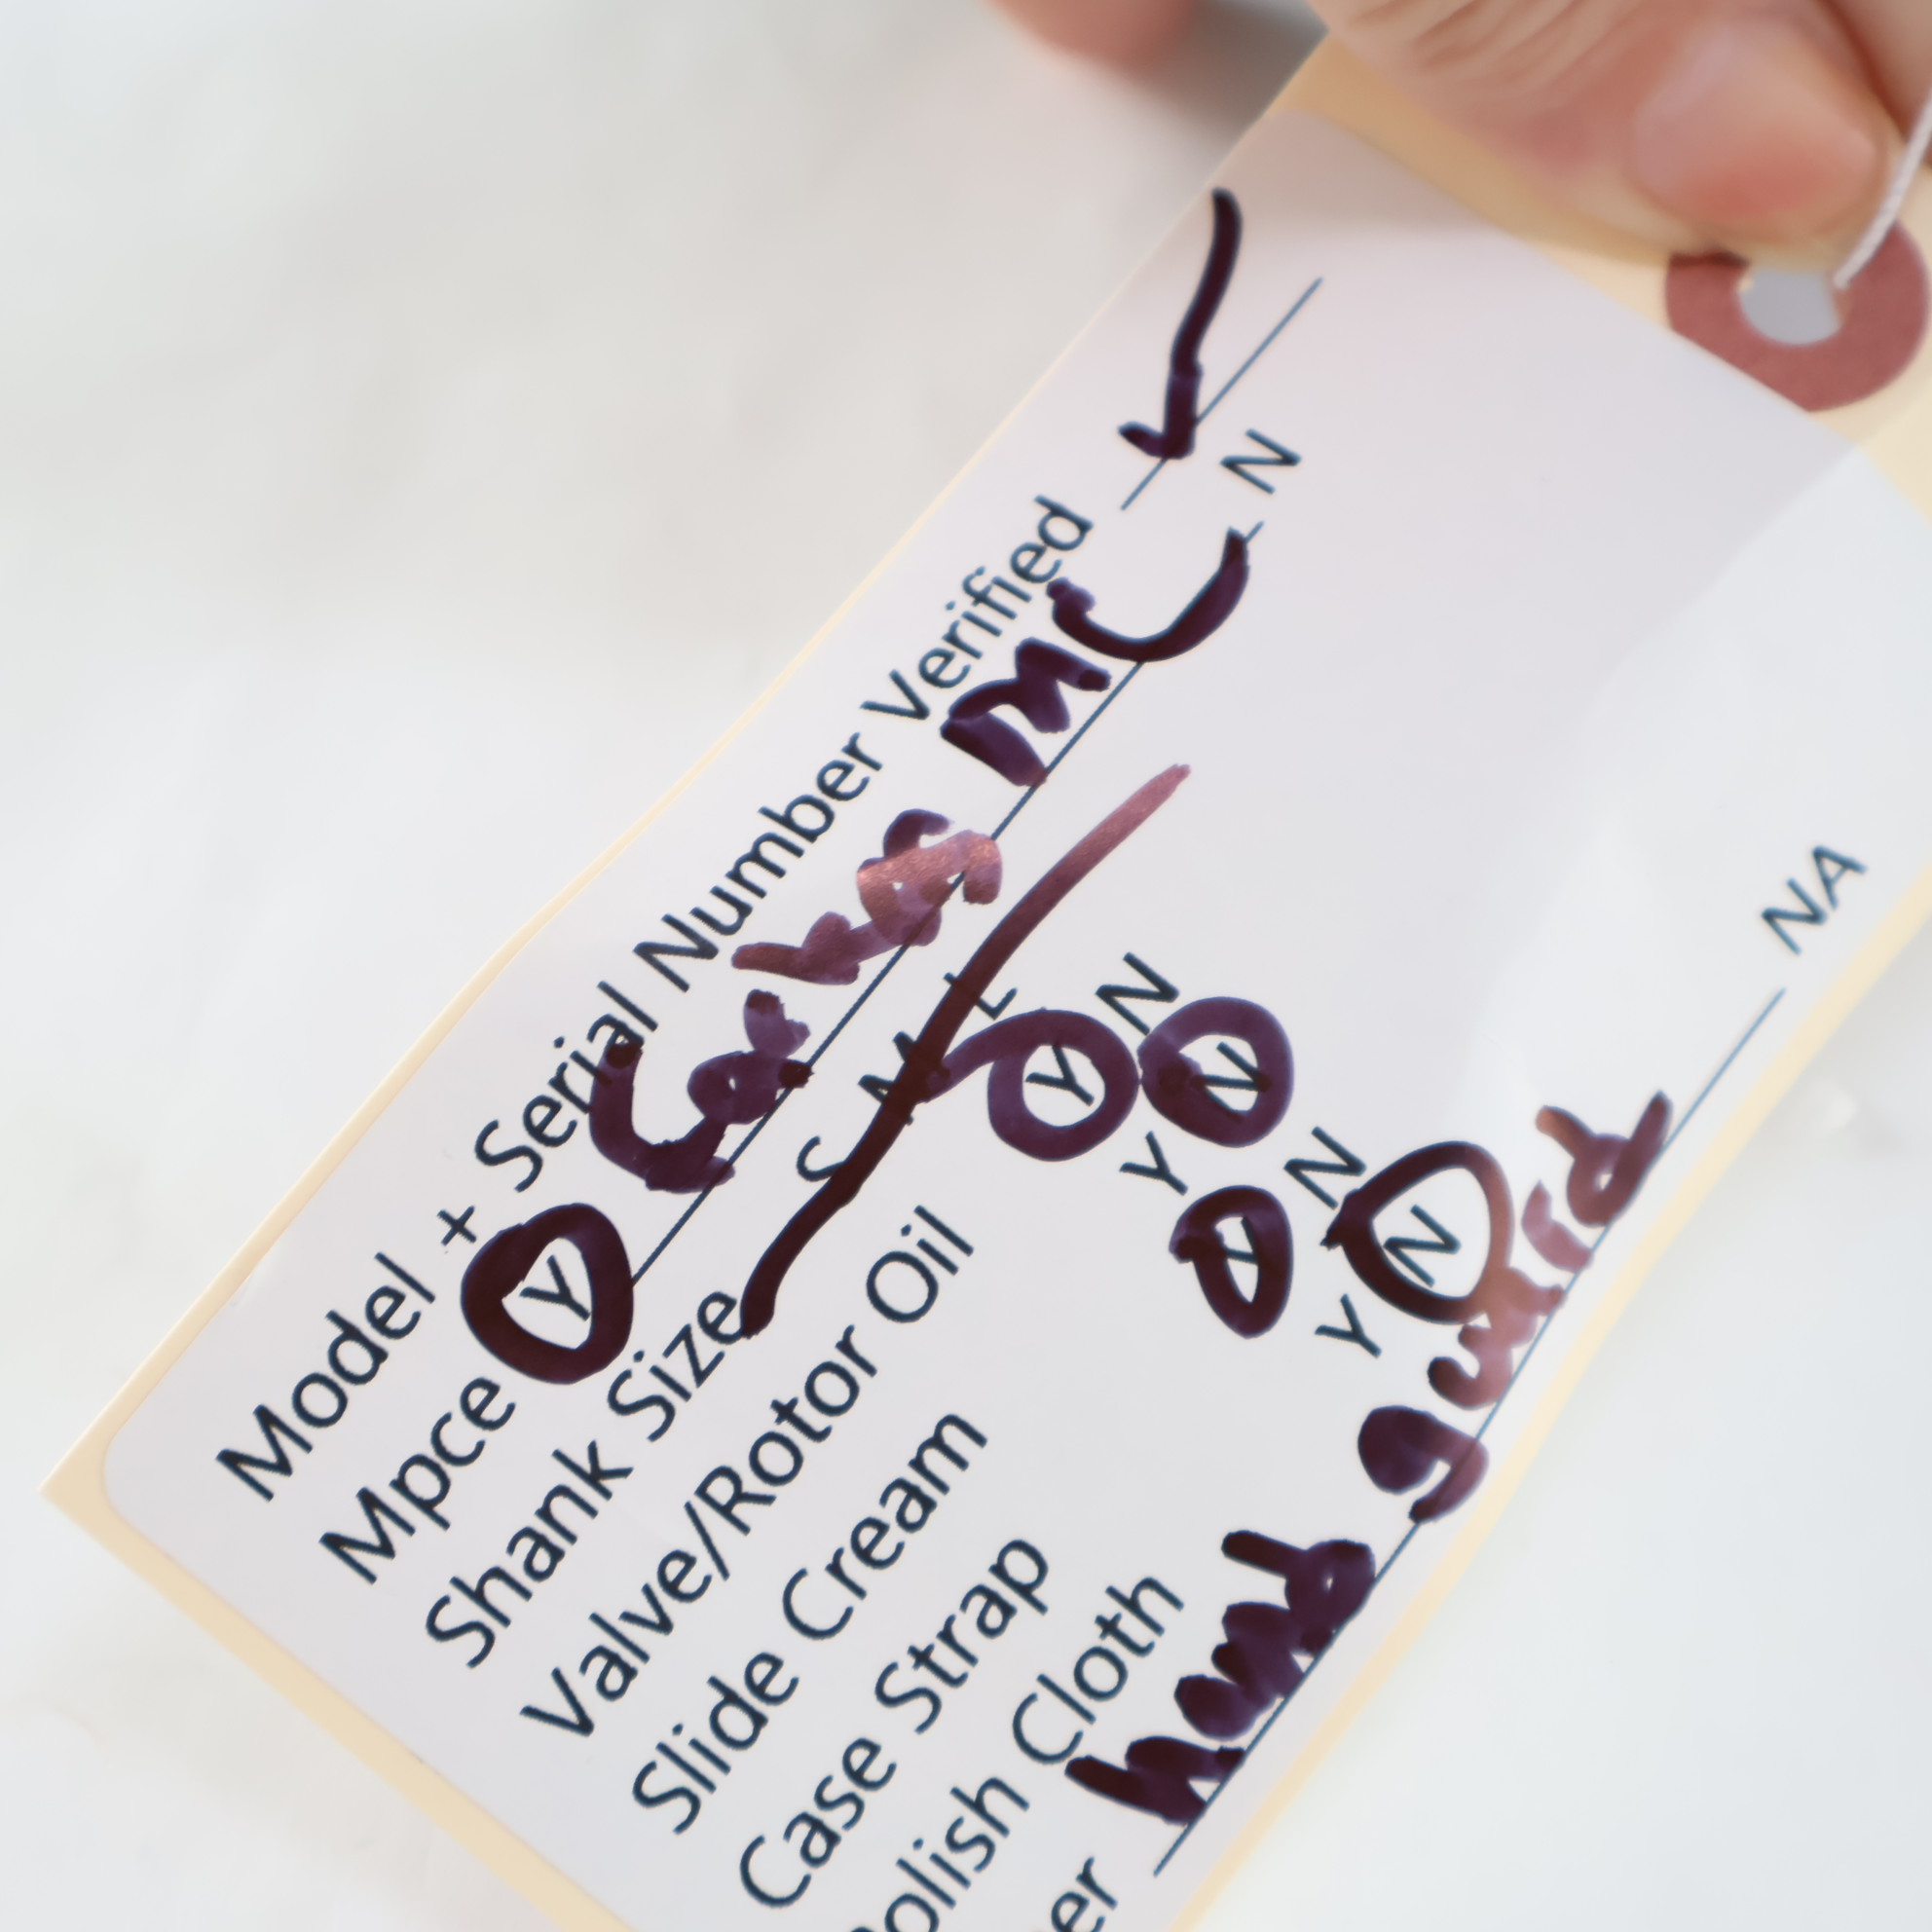 Model + Serial Number Verified ✓
Mpce Y MC N
Shank Size S M L
Valve/Rotor Oil Y N
Slide Cream Y N
Case Strap Y N
olish Cloth Y N
er hand guard NA